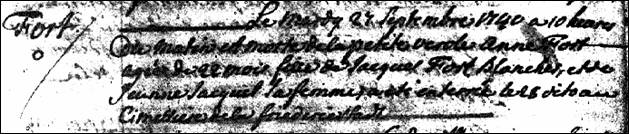 Fort
Le Mardy 27 Septembre 1740 a 10 heures
du matin est morte de la petite verole Anne Fort
agée de 22 mois fille de Jacques Fort Blancher, et de
Jeanne Jacques sa femme, a eté enterrée le 28 dito au
Cimettiere de la frideristadt